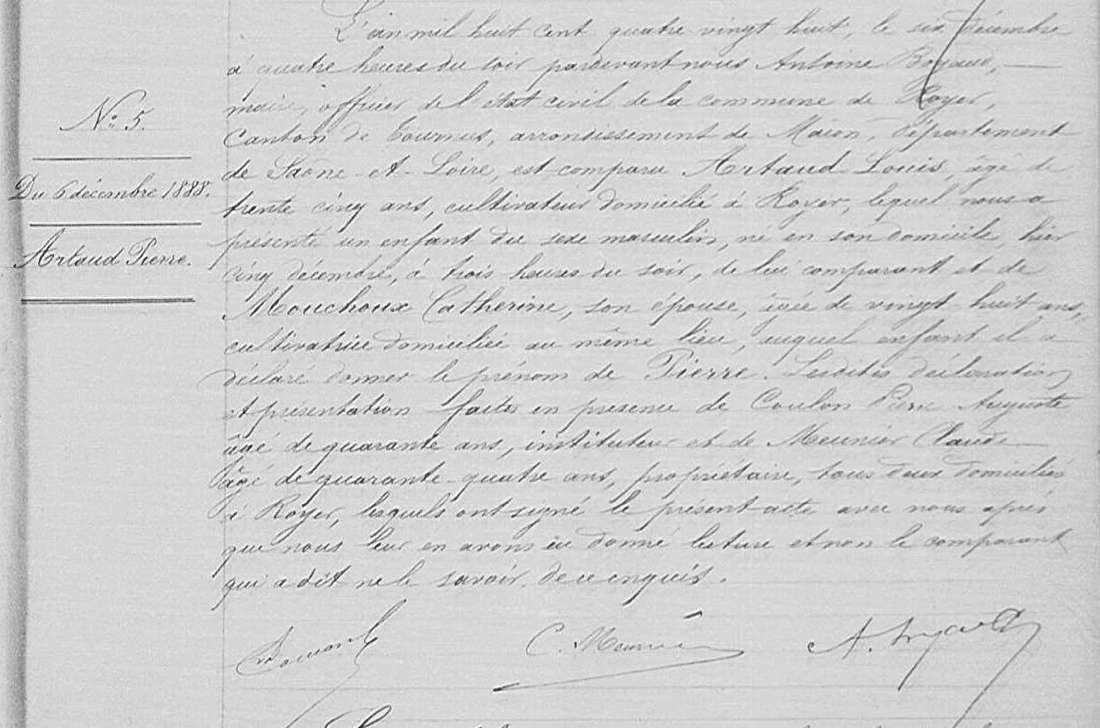 N° 5.
Du 6 décembre 1888.
Artaud Pierre.
L'an mil huit cent quatre vingt huit, le six décembre
à quatre heures du soir pardevant nous Antoine
maire, officier de l'état civil de la commune de Royer,
Canton de Tournus, arrondissement de Macon, département
de Saône-et-Loire, est comparu Artaud Louis, âgé de
trente cinq ans, cultivateur domicilié à Royer, lequel nous a
présenté un enfant du sexe masculin, né en son domicile, hier
cinq décembre, à trois heures du soir, de lui comparant et de
Mouchoux Catherine, son épouse, âgée de vingt huit ans,
cultivatrice domiciliée au même lieu, auquel enfant il a
déclaré donner le prénom de Pierre. Lesdites déclaration
et présentation faites en présence de Coulon Pierre Auguste
âgé de quarante ans, instituteur et de Meunier Claude
âgé de quarante-quatre ans, propriétaire, tous deux domiciliés
à Royer, lesquels ont signé le présent acte avec nous après
que nous leur en avons eu donné lecture et non le comparant
qui a dit ne le savoir de ce enquis.
C. Meunier A.